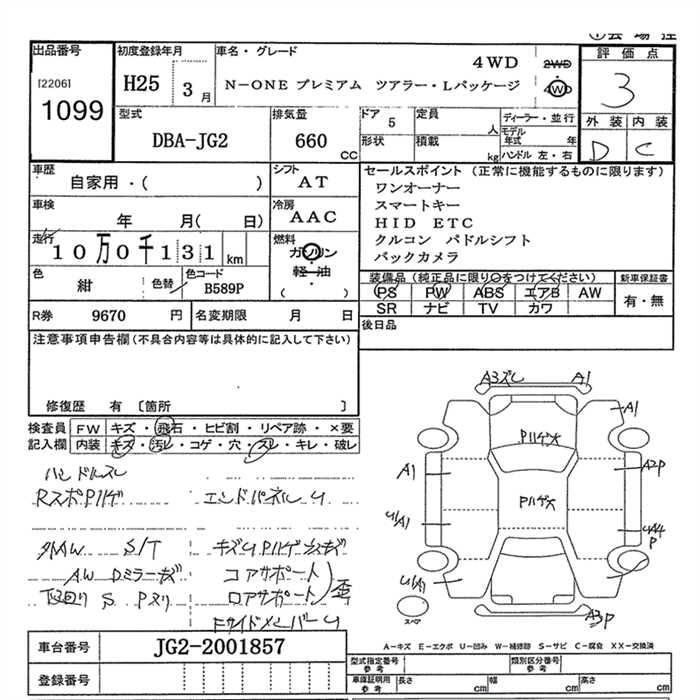 出品番号
[2206]
1099
初度登録年月
H25 3月
車名・グレード
4WD
N-ONE プレミアム ツアラー・Lパッケージ
2WD
4WD
評価点
3
外装 内装
D C
型式
DBA-JG2
排気量
660 CC
ドア 5
定員 人
形状
積載 kg
ディーラー・並行
モデル年式 年
ハンドル 左・右
車歴
自家用・( )
シフト
AT
セールスポイント (正常に機能するものに限ります)
ワンオーナー
スマートキー
HID ETC
クルコン パドルシフト
バックカメラ
車検
年 月( 日)
冷房
AAC
走行
10万0千131 km
燃料
ガソリン
軽・油
( )
色
紺
色替
色コード
B589P
装備品 (純正品に限り○をつけてください)
PS PW ABS エアB AW
SR ナビ TV カワ
新車保証書
有・無
R券 9670 円
名変期限 月 日
後日品
注意事項申告欄(不具合内容等は具体的に記入して下さい)
修復歴 有 [箇所 ]
検査員
記入欄
FW キズ・飛石・ヒビ割・リペア跡・×要
内装 キズ・汚レ・コゲ・穴・スレ・キレ・破レ
ハンドルスレ
RスポPハゲ エンドパネルU
外AW S/T キズU Pハゲ
AW Dミラーキズ コアサポート
下回りS Pヌリ ロアサポート 歪
FサイドメンバーU
A3ズレ A1
A1
Pハゲ大
A1
A2P
Pハゲ大
U/A1
U/A4
P
U/A1
A3P
スペア
A-キズ E-エクボ U-凹み W-補修跡 S-サビ C-腐食 XX-交換済
車台番号 JG2-2001857
登録番号
型式指定番号 参考
類別区分番号 参考
車庫証明用 参考
長さ cm 幅 cm 高さ cm